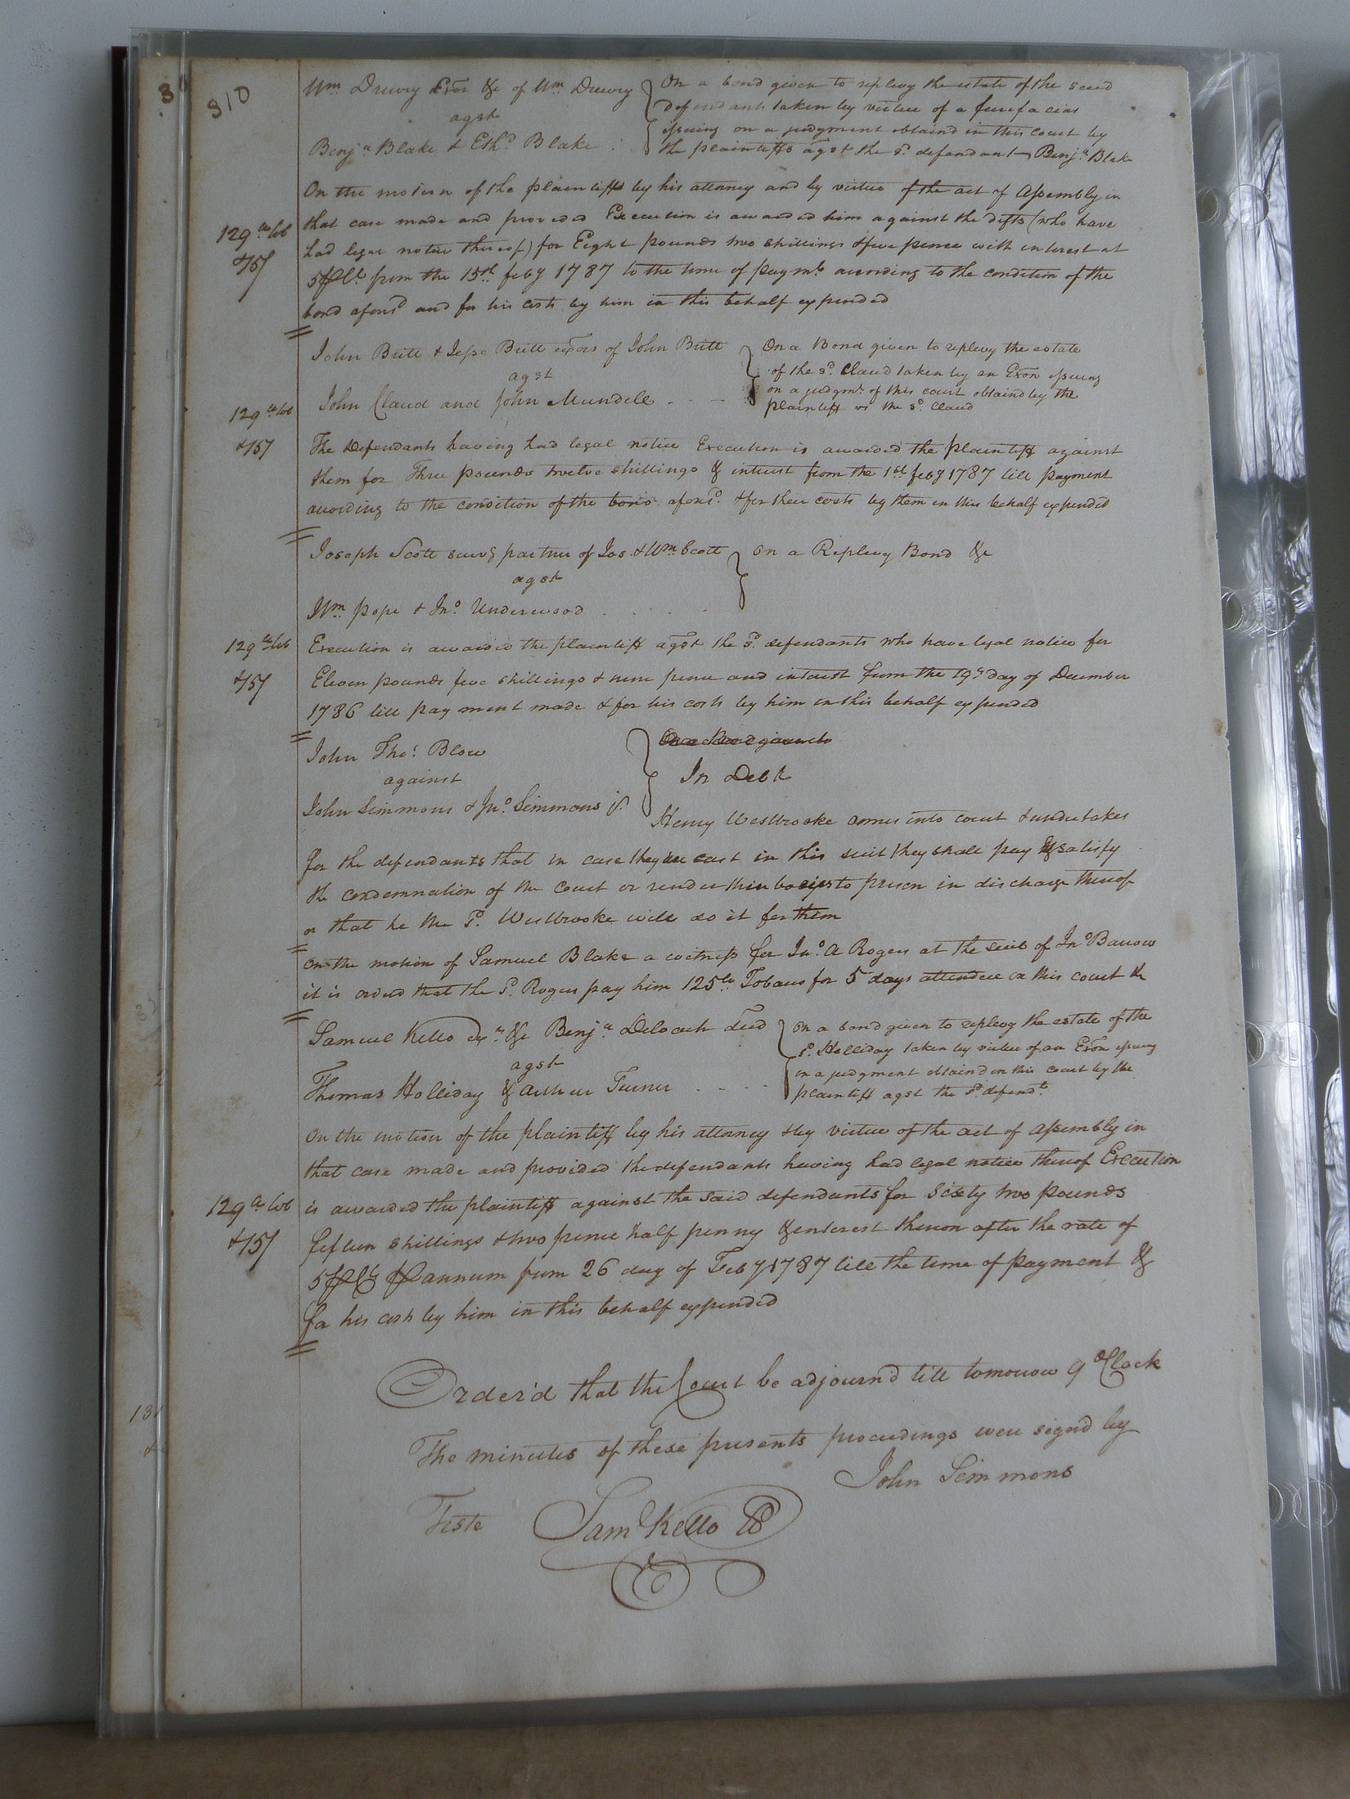 310
Wm Drury Exor &c of Wm Drury } On a bond given to replevy the estate of the said
agst
defendants taken by virtue of a fieri facias
issuing on a judgment obtaind in this court by
Benja Blake & Ethd Blake
the plaintiffs agst the sd. defendant Benja Blake
On the motion of the plaintiffs by his attorney and by virtue of the act of Assembly in
that case made and provided Execution is awarded him against the defts (who have
129 lb tob
had legal notice thereof) for Eight pounds two shillings & five pence with interest at
& 15/
5 P Ct. from the 15th feby 1787 to the time of paymt. according to the condition of the
bond aforesd and for his costs by him in this behalf expended
John Britt & Jesse Britt exors of John Britt } On a Bond given to replevy the estate
agst
of the sd. Claud taken by an Exon issuing
on a judgmt. of this court obtaind by the
John Claud and John Mundell
plaintiff vs the sd. Claud
129 lb tob
& 15/
The Defendants having had legal notice Execution is awarded the plaintiff against
them for Three pounds twelve shillings & interest from the 1st feby 1787 till payment
according to the condition of the bond aforesd. & for their costs by them in this behalf expended
Joseph Scott survg partner of Jos & Wm Scott } On a Replevy Bond &c
agst
Wm. Pope & Jno. Underwood
129 lb tob
Execution is awarded the plaintiff agst the sd. defendants who have legal notice for
& 15/
Eleven pounds five shillings & nine pence and interest from the 19. day of December
1786 till payment made & for his costs by him in this behalf expended
John Thos. Blow } On a Bond given to
against
In Debt
John Simmons & Jno. Simmons jr.
Henry Westbrooke comes into court & undertakes
for the defendants that in case they are cast in this suit they shall pay & satisfy
the condemnation of the court or render their bodies to prison in discharge thereof
or that he the sd. Westbrooke will do it for them
On the motion of Samuel Blake a witness for Jno. A Rogers at the suit of Jno Barrow
it is orderd that the sd. Rogers pay him 125 lb Tobacco for 5 days attendce in this court &c
Samuel Kello exr &c Benja Deloach decd } On a bond given to replevy the estate of the
agst
sd. Holliday taken by virtue of an Exon issuing
on a judgment obtaind in this court by the
Thomas Holliday & Arthur Turner
plaintiff agst the sd. defendt.
On the motion of the plaintiff by his attorney & by virtue of the act of Assembly in
that case made and provided the defendants having had legal notice thereof Execution
129 lb tob
is awarded the plaintiff against the said defendants for Sixty two pounds
& 15/
fifteen shillings & two pence half penny & interest thereon after the rate of
5 P Ct P annum from 26 day of Feby 1787 till the time of payment &
for his costs by him in this behalf expended
Order'd that the Court be adjourn'd till tomorrow 9 oClock
The minutes of these presents proceedings were signd by
John Simmons
Teste Saml Kello CC